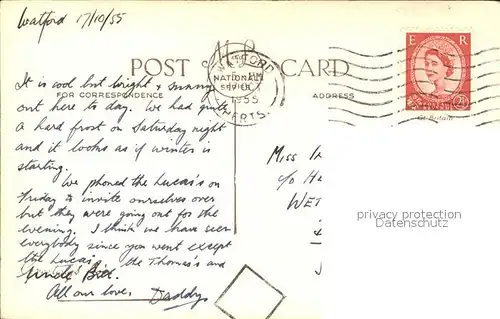 Watford 17/10/55
POST CARD
FOR CORRESPONDENCE
ADDRESS
WATFORD
NATIONAL
SERVICE
1955
HERTS.
E R
2½
Gt. Britain
It is cool but bright & sunny
out here to day. We had quite
a hard frost on Saturday night
and it looks as if winter is
starting.
We phoned the Lucas's on
Friday to invite ourselves over
but they were going out for the
evening. I think we have seen
everybody since you went except
the Lucas', the Thomas's and
Uncle Bill.
All our love, Daddy
Miss
c/o
WET
privacy protection
Datenschutz